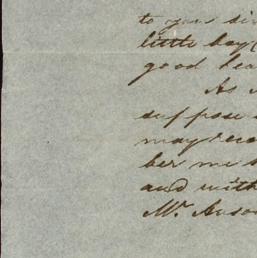 to you
little boy
good hea
As
suppose
may rece
ber me
and with
Mr. Anso